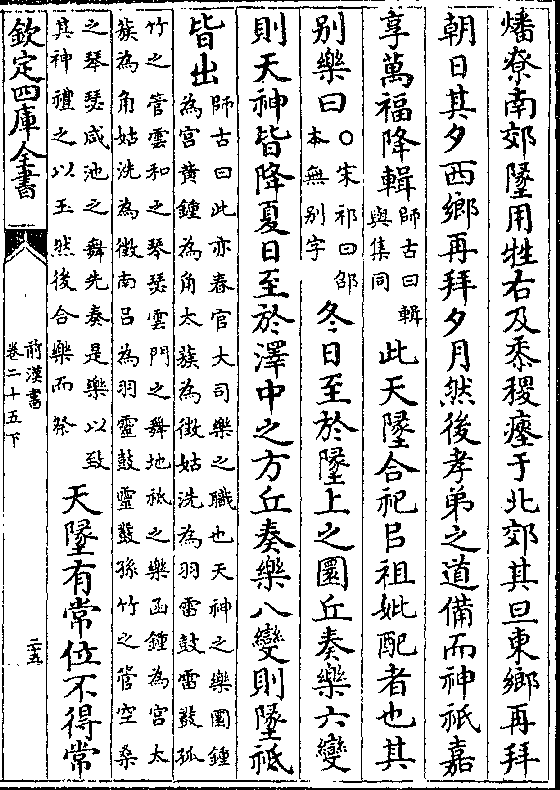 燔尞南郊墬用牲右及黍稷瘞于北郊其旦東鄉再拜
朝日其夕西鄉再拜夕月然後孝弟之道備而神祇嘉
享萬福降輯師古曰輯與集同此天墬合祀㠯祖妣配者也其
別樂曰○宋祁曰邵本無別字冬日至於墬上之圜丘奏樂六變
則天神皆降夏日至於澤中之方丘奏樂八變則墬祇
皆出師古曰此亦春官大司樂之職也天神之樂圜鍾為宮黃鍾為角太蔟為徵姑洗為羽雷鼓雷鼗孤
竹之管雲和之琴瑟雲門之舞地祇之樂函鍾為宮太蔟為角姑洗為徵南呂為羽靈鼓靈鼗孫竹之管空桑
之琴瑟咸池之舞先奏是樂以致其神禮之以玉然後合樂而祭天墬有常位不得常
欽定四庫全書
前漢書
卷二十五下
二十五